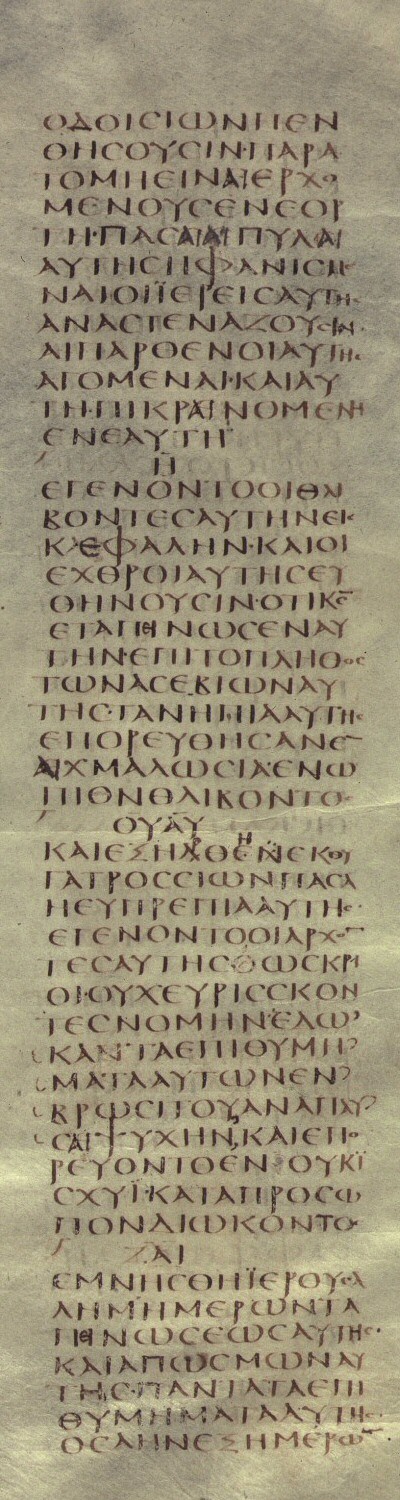 ΟΔΟΙϹΙΩΝΠΕΝ
ΘΗϹΟΥϹΙΝ·ΠΑΡΑ
ΤΟΜΗΕΙΝΑΙΕΡΧΟ
ΜΕΝΟΥϹΕΝΕΟΡ
ΤΗ·ΠΑϹΑΙΑΙΠΥΛΑΙ
ΑΥΤΗϹΗΦΑΝΙϹΜΕ
ΝΑΙΟΙΪΕΡΕΙϹΑΥΤΗϹ
ΑΝΑϹΤΕΝΑΖΟΥϹΙΝ·
ΑΙΠΑΡΘΕΝΟΙΑΥΤΗϹ
ΑΓΟΜΕΝΑΙ·ΚΑΙΑΥ
ΤΗ·ΠΙΚΡΑΙΝΟΜΕΝΗ
ΕΝΕΑΥΤΗ
Η
ΕΓΕΝΟΝΤΟΟΙΘΛΙ
ΒΟΝΤΕϹΑΥΤΗΝΕΙϹ
ΚΕΦΑΛΗΝ·ΚΑΙΟΙ
ΕΧΘΡΟΙΑΥΤΗϹΕΥ
ΘΗΝΟΥϹΙΝ·ΟΤΙΚϹ̅
ΕΤΑΠΙΝΩϹΕΝΑΥ
ΤΗΝ·ΕΠΙΤΟΠΛΗΘΟϹ
ΤΩΝΑϹΕΒΙΩΝΑΥ
ΤΗϹ·ΤΑΝΗΠΙΑΑΥΤΗϹ
ΕΠΟΡΕΥΘΗϹΑΝΕ̅
ΑΙΧΜΑΛΩϹΙΑ·ΕΝΩ
ΠΙΟΝΘΛΙΒΟΝΤΟϹ
ΟΥΑΥ
ΚΑΙΕΞΗΛΘΕΝΕΚΘΥ
ΓΑΤΡΟϹϹΙΩΝΠΑϹΑ
ΗΕΥΠΡΕΠΙΑΑΥΤΗϹ·
ΕΓΕΝΟΝΤΟΟΙΑΡΧΟ̅
ΤΕϹΑΥΤΗϹΩϹΚΡΙ
ΟΙ·ΟΥΧΕΥΡΙϹϹΚΟΝ
ΤΕϹΝΟΜΗΝ·ΕΔΩ
ΚΑΝΤΑΕΠΙΘΥΜΗ
ΜΑΤΑΑΥΤΩΝΕΝ
ΒΡΩϹΙΤΟΥΑΝΑΠΑΥ
ϹΑΙΨΥΧΗΝ,ΚΑΙΕΠΟ
ΡΕΥΟΝΤΟΕΝΟΥΚΪ
ϹΧΥΪ·ΚΑΤΑΠΡΟϹΩ
ΠΟΝΔΙΩΚΟΝΤΟϹ
ΖΑΙ
ΕΜΝΗϹΘΗΪΕΡΟΥϹΑ
ΛΗΜΗΜΕΡΩΝΤΑ
ΠΙΝΩϹΕΩϹΑΥΤΗϹ·
ΚΑΙΑΠΩϹΜΩΝΑΥ
ΤΗϹ·ΠΑΝΤΑΤΑΕΠΙ
ΘΥΜΗΜΑΤΑΑΥΤΗϹ
ΟϹΑΗΝΕΞΗΜΕΡΩ̅